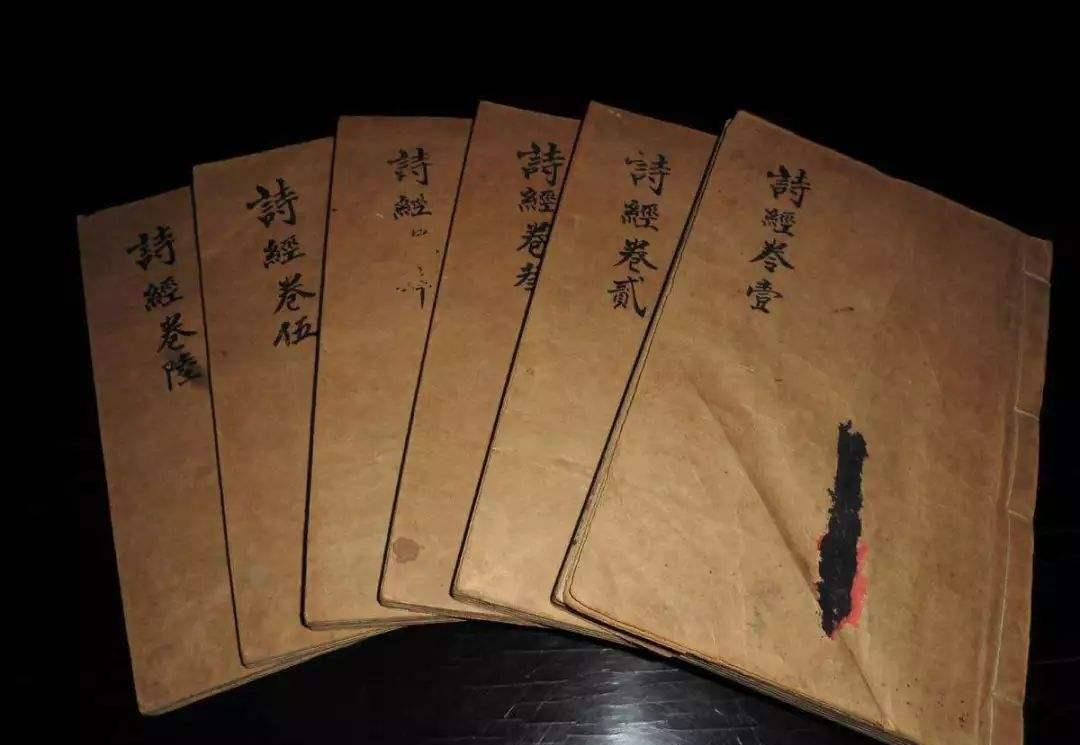 詩經卷壹
詩經卷貳
詩經卷叁
詩經
詩經卷伍
詩經卷陸